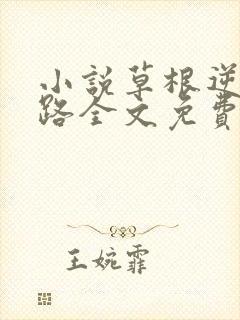 小說草根逆
路全文免費
王婉霏